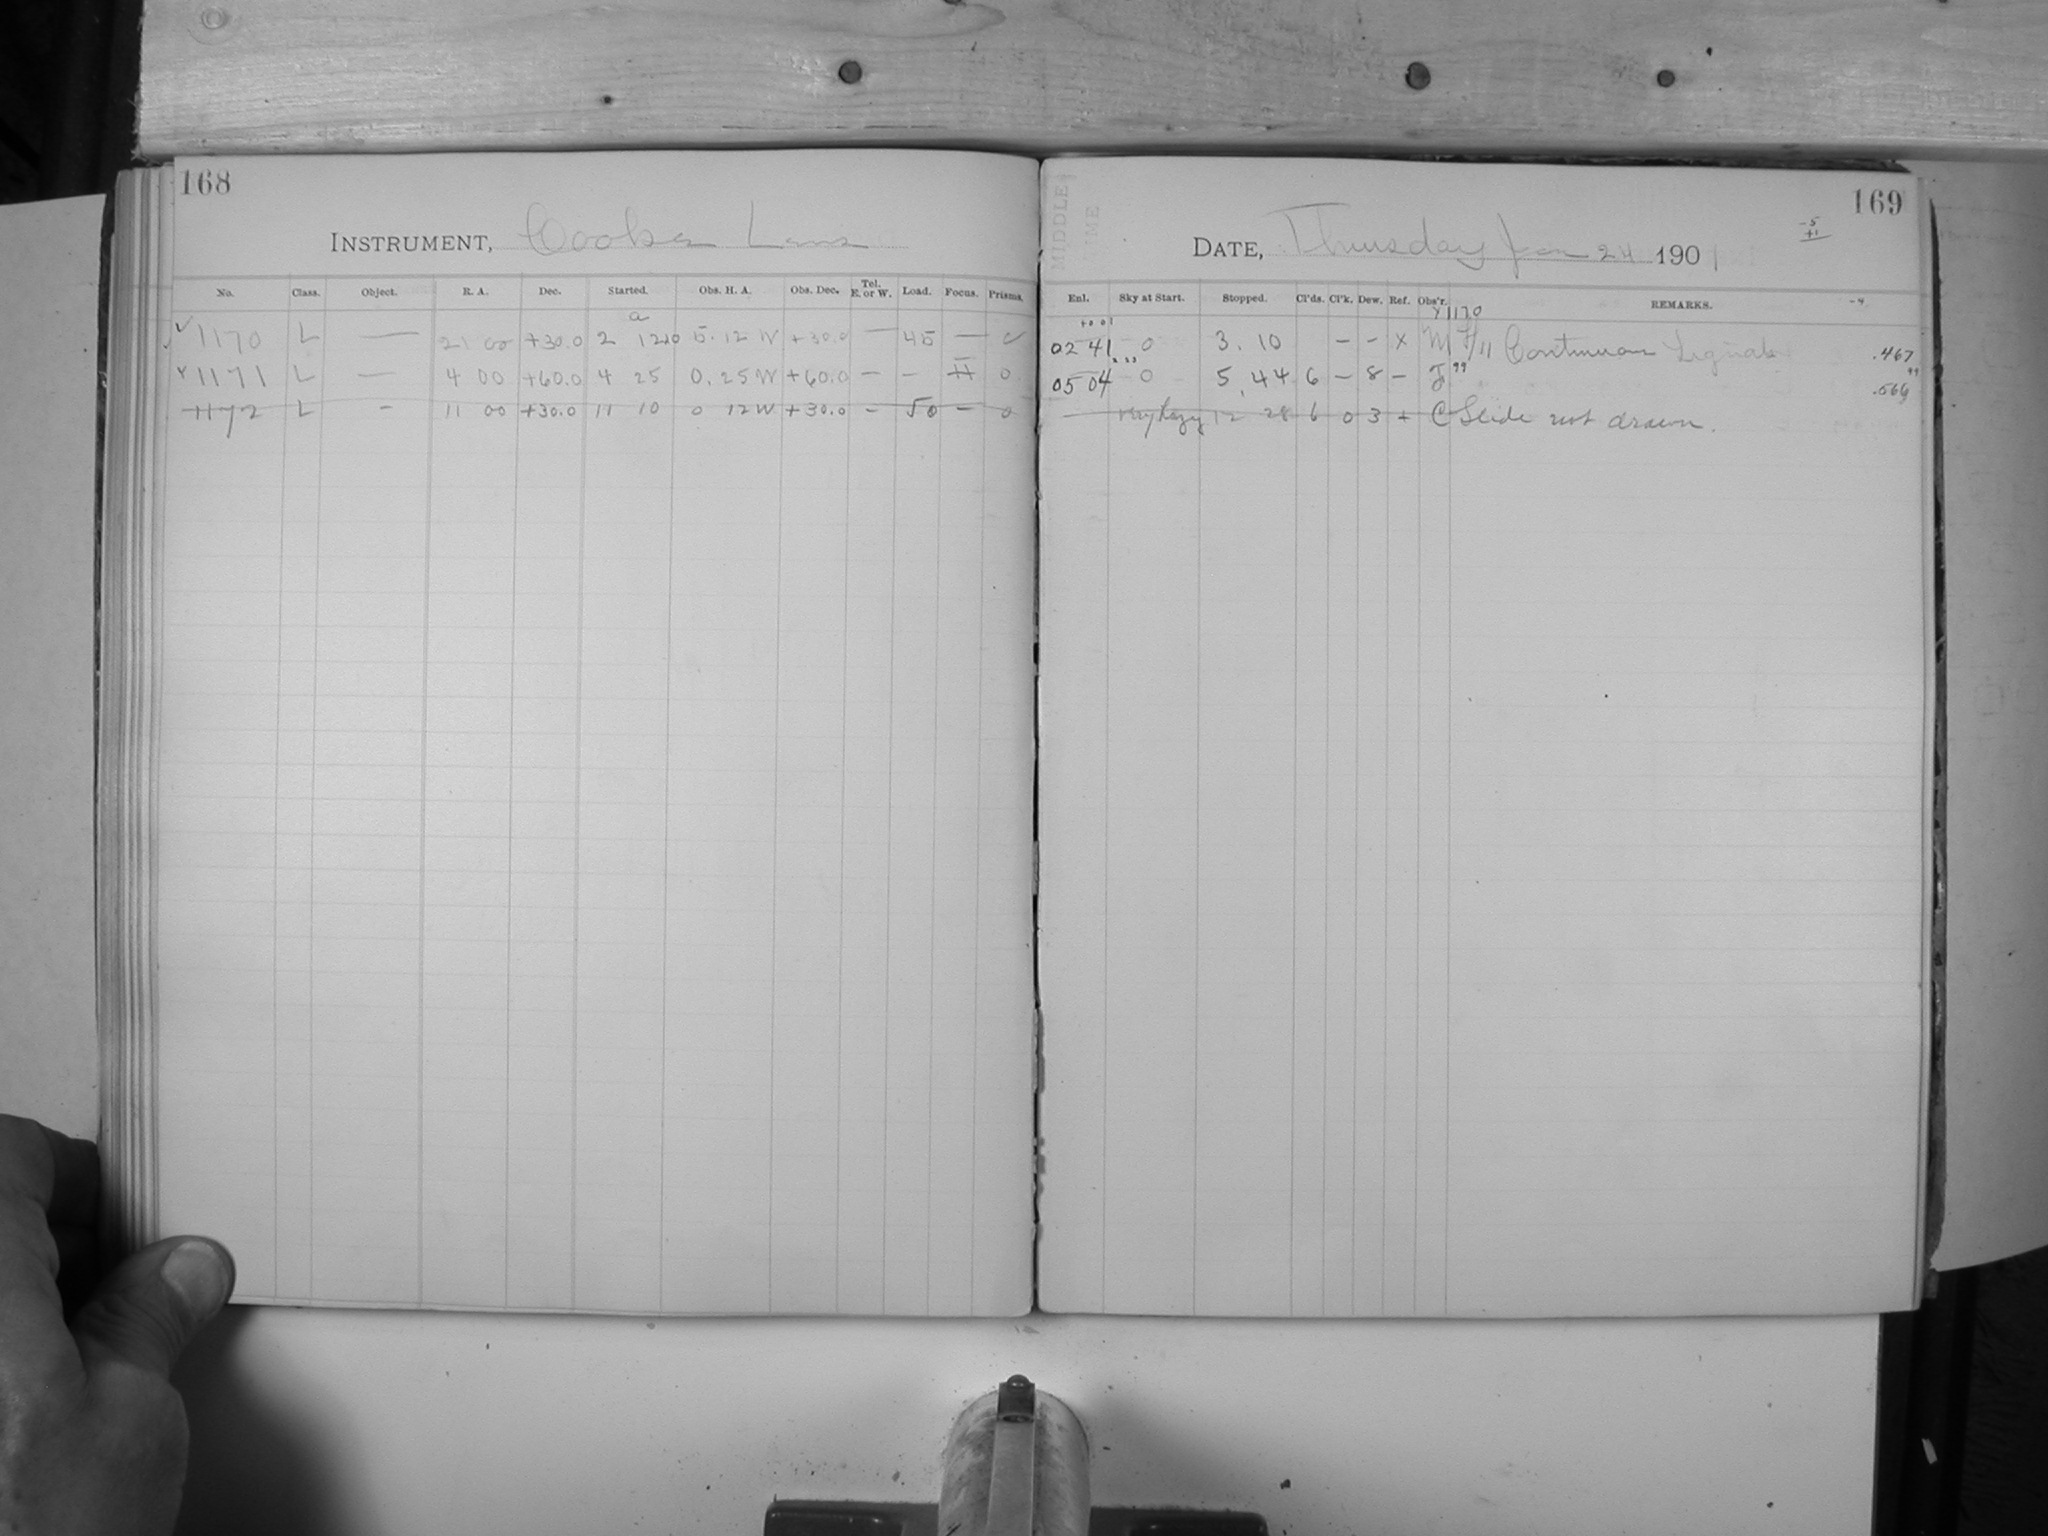 168
INSTRUMENT, Cooke Lens
No. Class. Object. R. A. Dec. Started. Obs. H. A. Obs. Dec. Tel. E. or W. Load. Focus. Prisms.
a
√ 1170 L — 21 00 +30.0 2 12 5. 12 W +30.0 — 45 —
√ 1171 L — 4 00 +60.0 4 25 0. 25 W +60.0 — — 0
1172 L — 11 00 +30.0 11 10 0 12 W +30.0 — 50 — 0
169
-5
+1
DATE, Thursday Jan 24 1901
MIDDLE
ME
Enl. Sky at Start. Stopped. Cl'ds. Cl'k. Dew. Ref. Obs'r. REMARKS. -4
1170
02 41 0 3. 10 — — x M Continuous Signals .467
05 04 0 5. 44 6 — 8 — J
— very hazy 12 28 6 0 3 + C Slide not drawn.